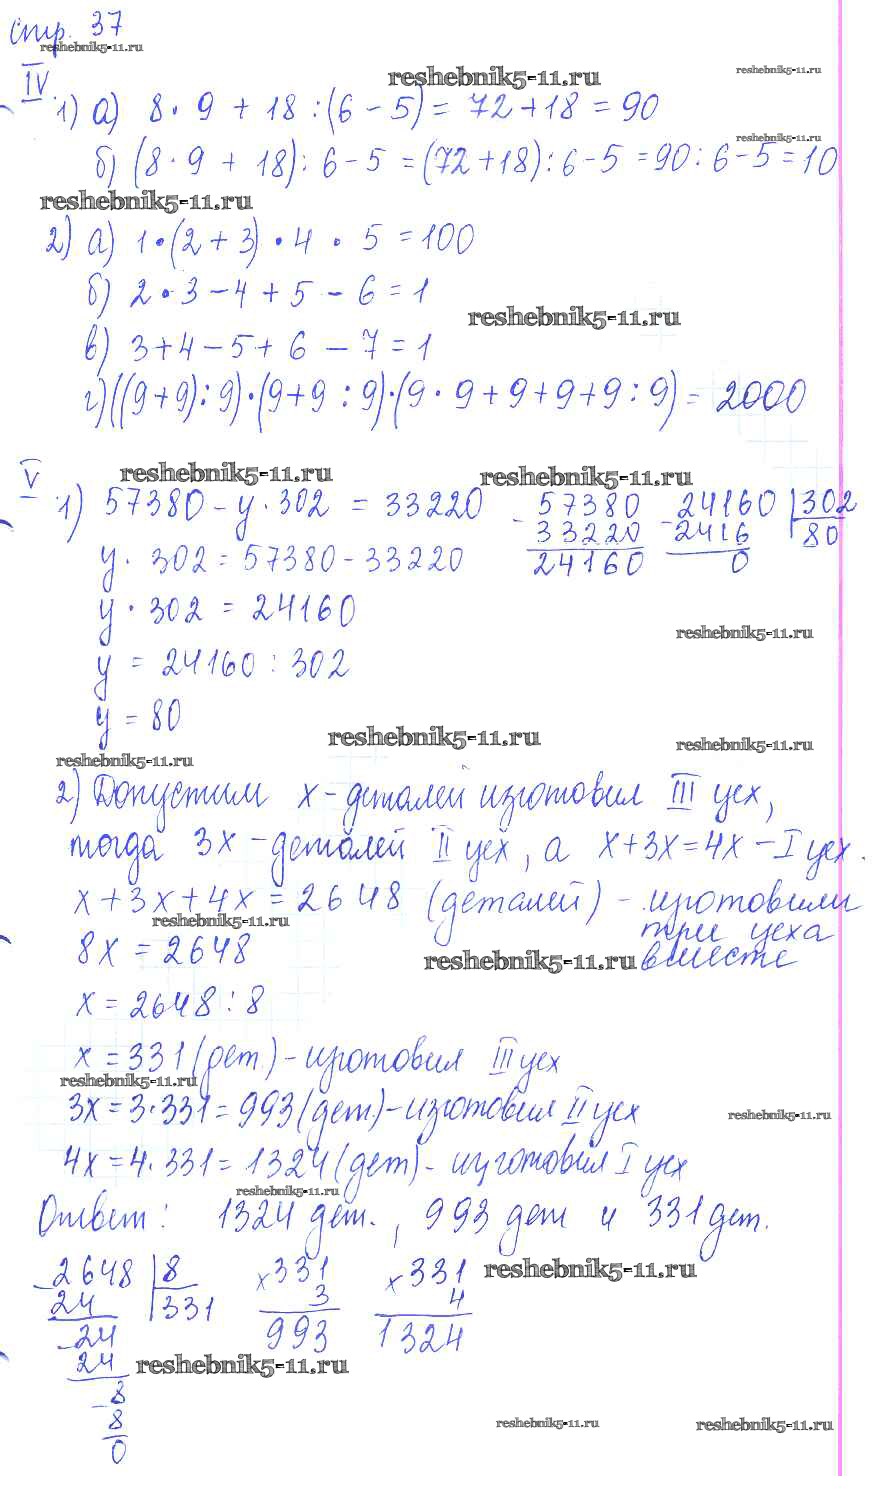 стр. 37
reshebnik5-11.ru
IV
reshebnik5-11.ru
reshebnik5-11.ru
1) а) 8 · 9 + 18 : (6 − 5) = 72 + 18 = 90
reshebnik5-11.ru
б) (8 · 9 + 18) : 6 − 5 = (72 + 18) : 6 − 5 = 90 : 6 − 5 = 10
reshebnik5-11.ru
2) а) 1 · (2 + 3) · 4 · 5 = 100
б) 2 · 3 − 4 + 5 − 6 = 1
reshebnik5-11.ru
в) 3 + 4 − 5 + 6 − 7 = 1
г) ((9 + 9) : 9) · (9 + 9 : 9) · (9 · 9 + 9 + 9 + 9 : 9) = 2000
V
reshebnik5-11.ru
reshebnik5-11.ru
1) 57380 − y · 302 = 33220
y · 302 = 57380 − 33220
y · 302 = 24160
y = 24160 : 302
y = 80
− 57380
33220
24160
− 24160 | 302
2416 | 80
0
reshebnik5-11.ru
reshebnik5-11.ru
reshebnik5-11.ru
reshebnik5-11.ru
2) Допустим x − деталей изготовил III цех,
тогда 3x − деталей II цех, а x + 3x = 4x − I цех.
x + 3x + 4x = 2648 (деталей) − изготовили
три цеха
вместе
reshebnik5-11.ru
reshebnik5-11.ru
8x = 2648
x = 2648 : 8
x = 331 (дет) − изготовил III цех
reshebnik5-11.ru
3x = 3 · 331 = 993 (дет) − изготовил II цех
reshebnik5-11.ru
4x = 4 · 331 = 1324 (дет) − изготовил I цех
reshebnik5-11.ru
Ответ: 1324 дет., 993 дет и 331 дет.
− 2648 | 8
24 | 331
− 24
24
− 8
8
0
× 331
3
993
× 331
4
1324
reshebnik5-11.ru
reshebnik5-11.ru
reshebnik5-11.ru
reshebnik5-11.ru